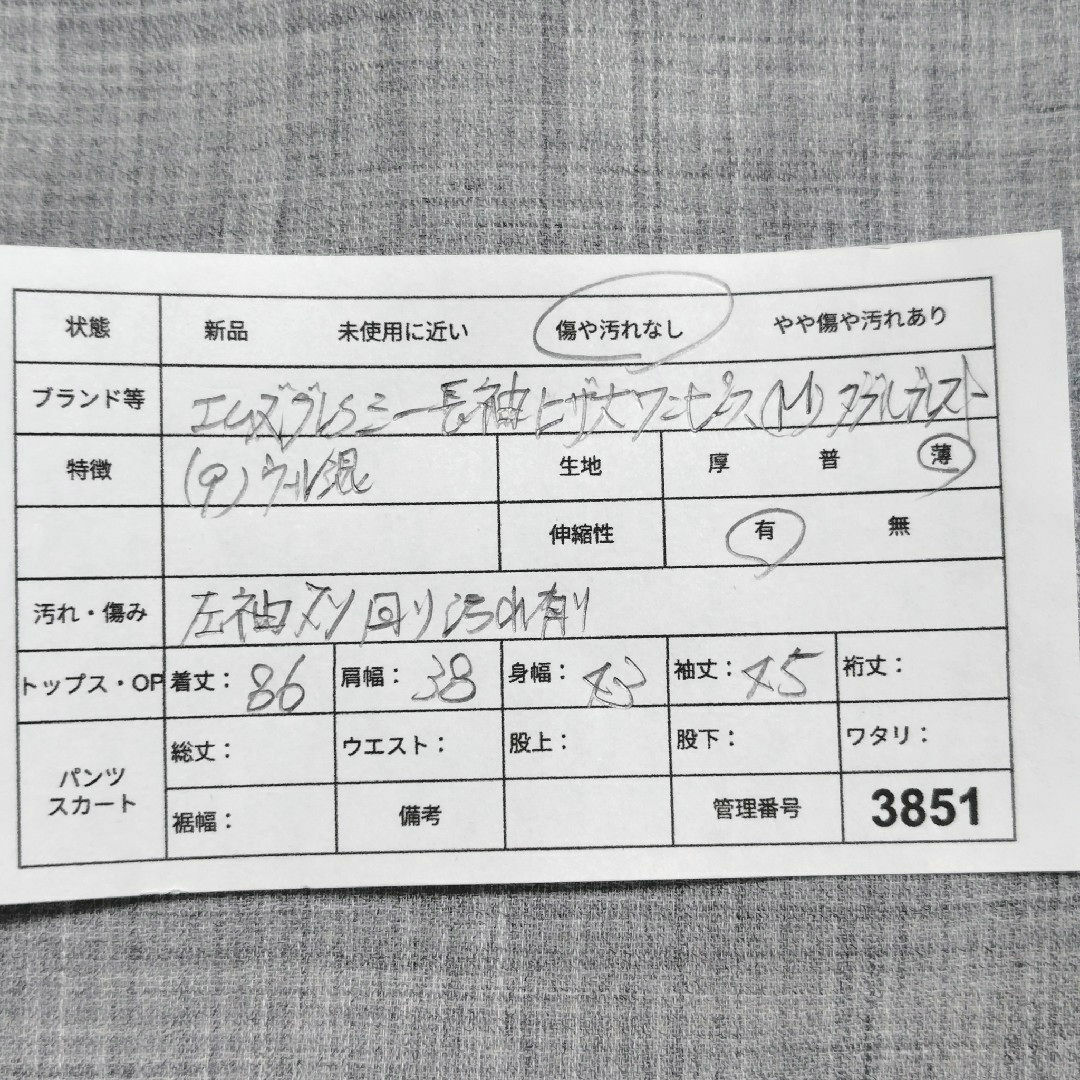 状態 新品 未使用に近い 傷や汚れなし やや傷や汚れあり
ブランド等 エムズグレシー 長袖ヒザ丈ワンピース(M) ダブルブレスト
特徴 (9) ウール混 生地 厚 普 薄
伸縮性 有 無
汚れ・傷み 左袖スソ回り汚れ有り
トップス・OP 着丈: 86 肩幅: 38 身幅: 43 袖丈: 45 裄丈:
パンツ スカート 総丈: ウエスト: 股上: 股下: ワタリ:
裾幅: 備考 管理番号 3851